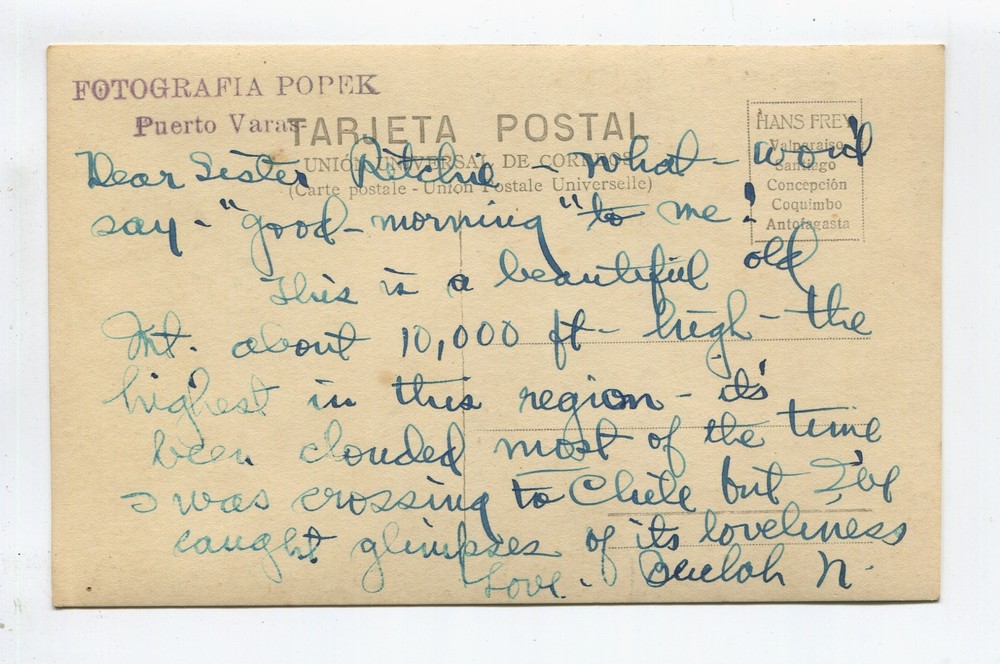 FOTOGRAFIA POPEK
Puerto Varas
TARJETA POSTAL
UNIÓN UNIVERSAL DE CORREOS
(Carte postale - Union Postale Universelle)
HANS FREY
Valparaiso
Santiago
Concepción
Coquimbo
Antofagasta
Dear Sister Ritchie - What - won't
say - "good-morning" to me!
This is a beautiful old
Mt. about 10,000 ft - high - the
highest in this region - it's
been clouded most of the time
I was crossing to Chile but I've
caught glimpses of its loveliness
Love - Beulah N.